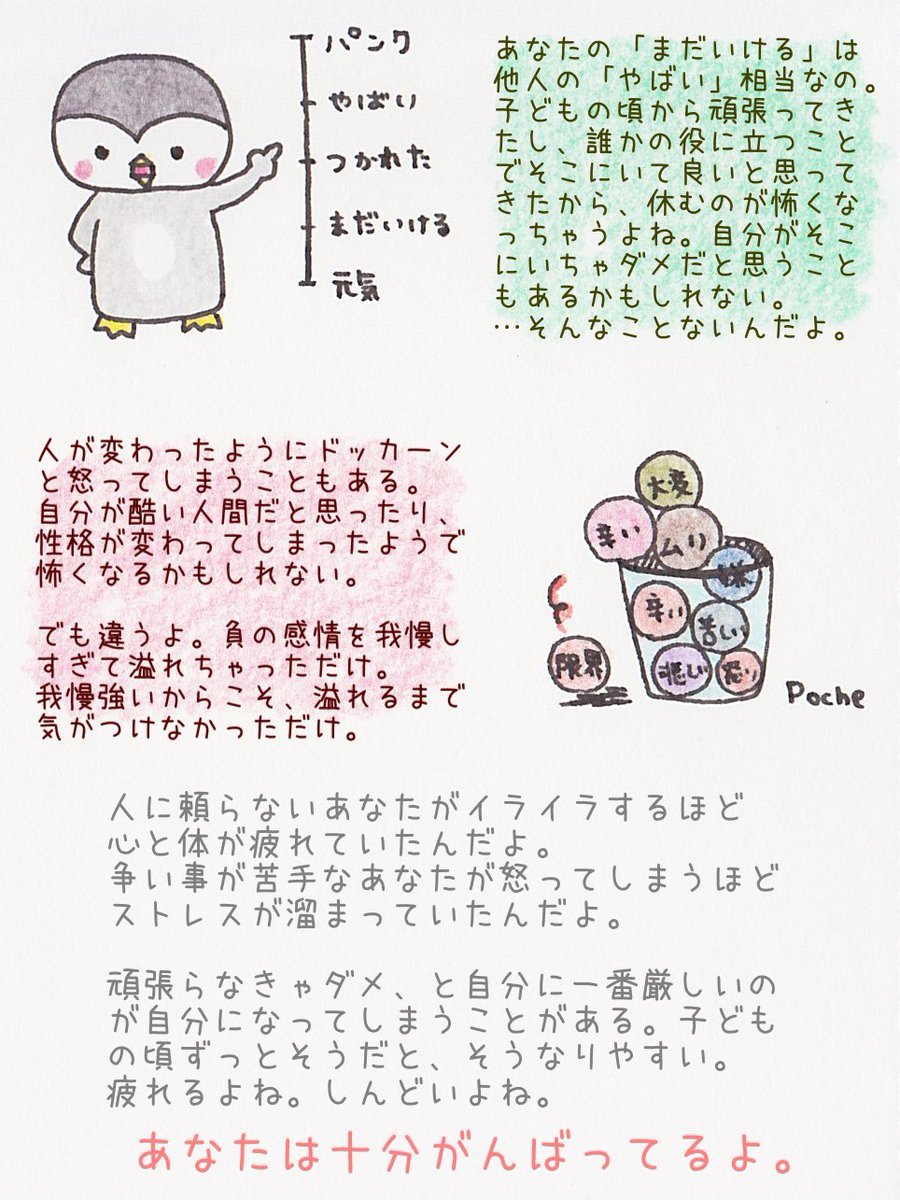 パンク
やばい
つかれた
まだいける
元気
あなたの「まだいける」は
他人の「やばい」相当なの。
子どもの頃から頑張ってき
たし、誰かの役に立つこと
でそこにいて良いと思って
きたから、休むのが怖くな
っちゃうよね。自分がそこ
にいちゃダメだと思うこと
もあるかもしれない。
…そんなことないんだよ。
人が変わったようにドッカーン
と怒ってしまうこともある。
自分が酷い人間だと思ったり、
性格が変わってしまったようで
怖くなるかもしれない。
でも違うよ。負の感情を我慢し
すぎて溢れちゃっただけ。
我慢強いからこそ、溢れるまで
気がつけなかっただけ。
大変
辛い
ムリ
嫌
辛い
苦しい
限界
悲しい
怒り
Poche
人に頼らないあなたがイライラするほど
心と体が疲れていたんだよ。
争い事が苦手なあなたが怒ってしまうほど
ストレスが溜まっていたんだよ。
頑張らなきゃダメ、と自分に一番厳しいの
が自分になってしまうことがある。子ども
の頃ずっとそうだと、そうなりやすい。
疲れるよね。しんどいよね。
あなたは十分がんばってるよ。